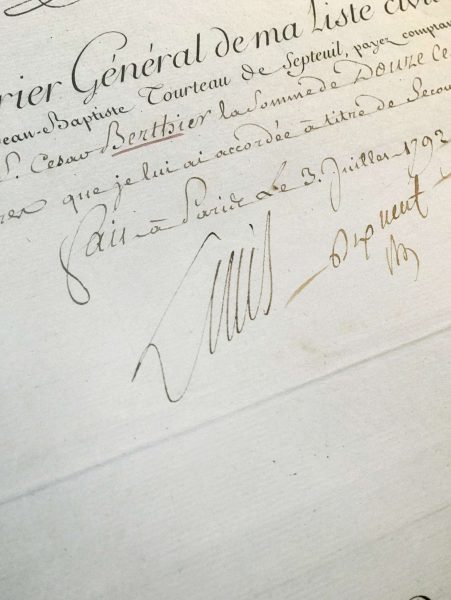 rier Général de ma Liste civi
Jean-Baptiste Tourteau de Septeuil, payez comptan
S. Cesar Berthier la Somme de Douze Ce
que je lui ai accordée à titre de Secou
Fait à Paris Le 3. Juillet 1792
Louis